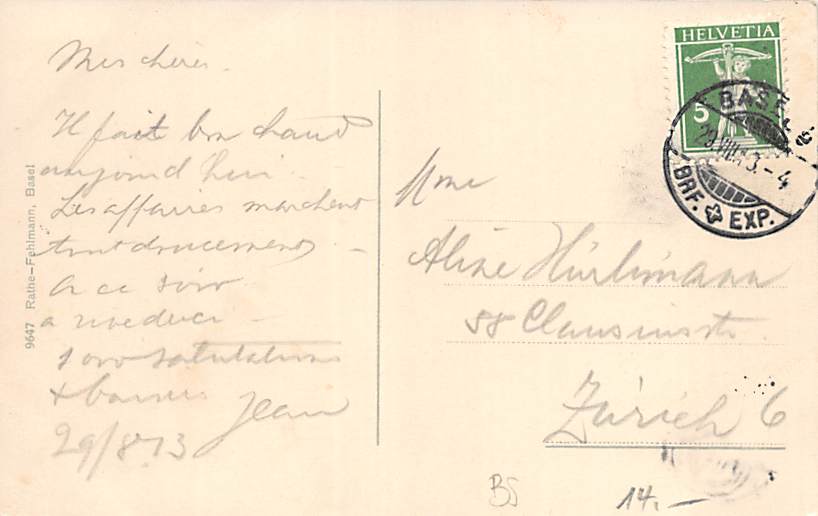 Mes chères.
Il fait bon chaud
aujourd'hui.
Les affaires marchent
tout doucement -
A ce soir
a rivederci -
1000 salutations
+ baisers Jean
29/8 13
9647 Rathe-Fehlmann, Basel
HELVETIA
5
BASEL
29.VIII.13.-4
BRF. EXP.
Mme
Aline Hürlimann
58 Clausiusstr.
Zürich 6
BS
14.-